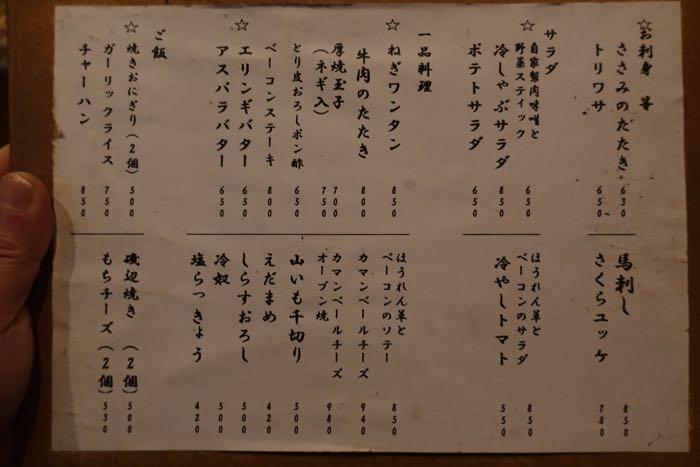 ☆お刺身 等
ささみのたたき 630
トリワサ 650
馬刺し 850
さくらユッケ 780
サラダ
☆自家製肉味噌と
野菜スティック 650
冷しゃぶサラダ 850
ポテトサラダ 650
ほうれん草と
ベーコンのサラダ 850
冷やしトマト 550
一品料理
☆ねぎワンタン 850
牛肉のたたき 800
厚焼玉子 700
(ネギ入) 750
とり皮おろしポン酢 650
ベーコンステーキ 800
☆エリンギバター 650
アスパラバター 650
ほうれん草と
ベーコンのソテー 850
カマンベールチーズ 940
カマンベールチーズ
オーブン焼 980
山いも千切り 500
えだまめ 420
しらすおろし 500
冷奴 500
塩らっきょう 420
ご飯
☆焼きおにぎり(2個) 500
ガーリックライス 750
チャーハン 850
磯辺焼き (2個) 500
もちチーズ (2個) 530